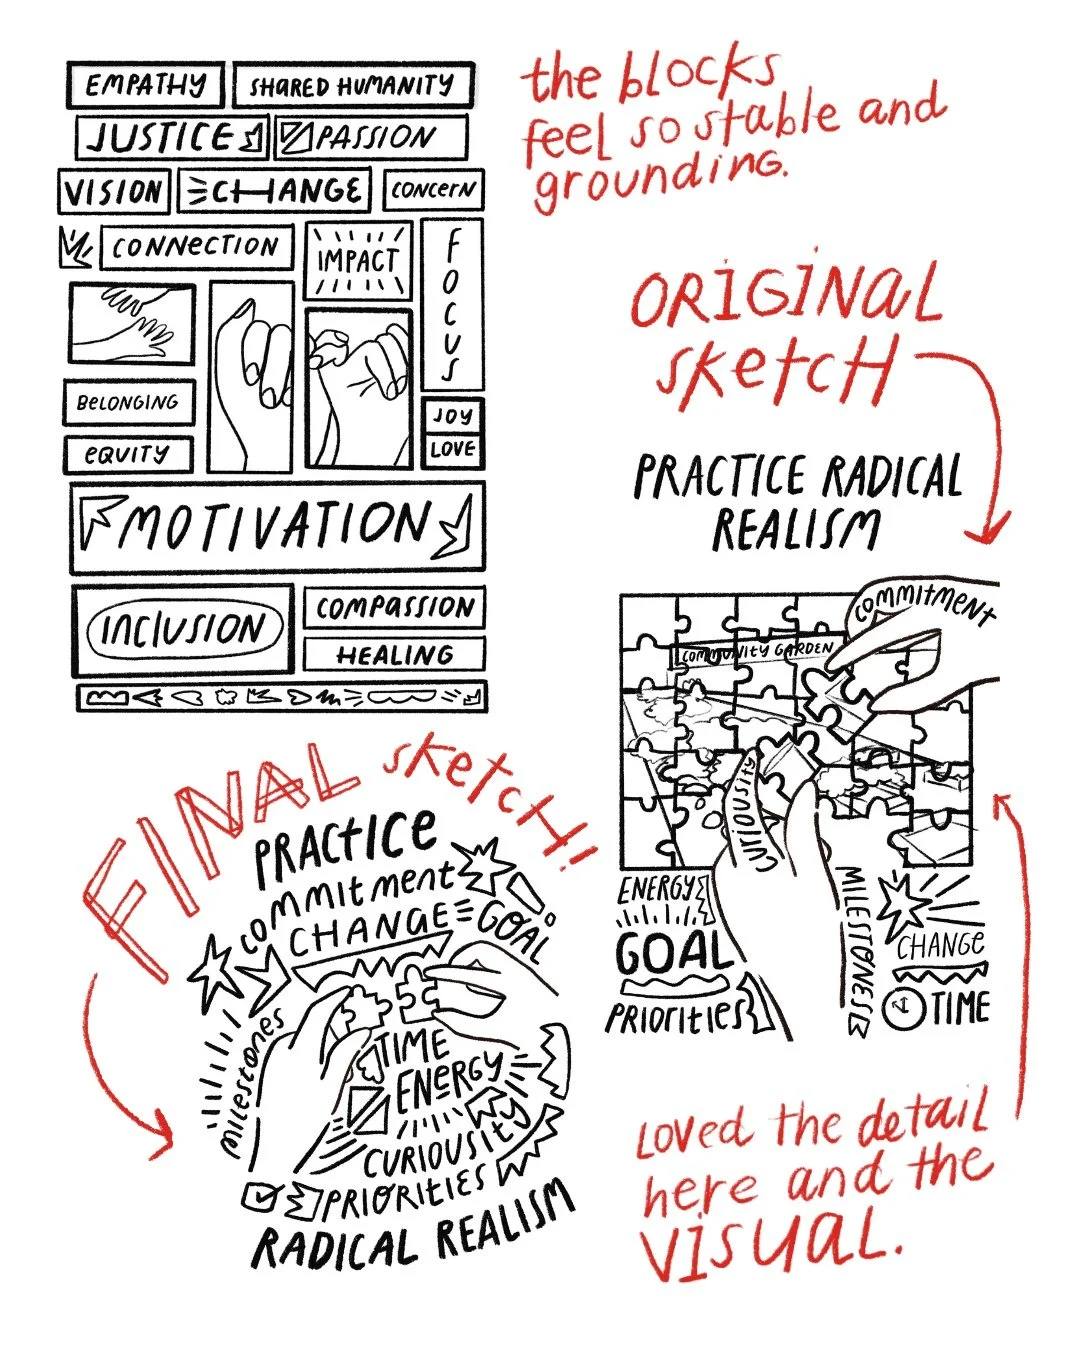 EMPATHY
SHARED HUMANITY
JUSTICE
PASSION
VISION
CHANGE
CONCERN
CONNECTION
IMPACT
FOCUS
BELONGING
EQUITY
JOY
LOVE
MOTIVATION
INCLUSION
COMPASSION
HEALING
the blocks
feel so stable and
grounding.
ORIGINAL
sketch
PRACTICE RADICAL
REALISM
COMMITMENT
COMMUNITY GARDEN
CURIOUSITY
ENERGY
GOAL
PRIORITIES
MILESTONES
CHANGE
TIME
LOVED the detail
here and the
VISUAL.
FINAL sketch!
PRACTICE
commitment
CHANGE
GOAL
milestones
TIME
ENERGY
CURIOUSITY
PRIORITIES
RADICAL REALISM